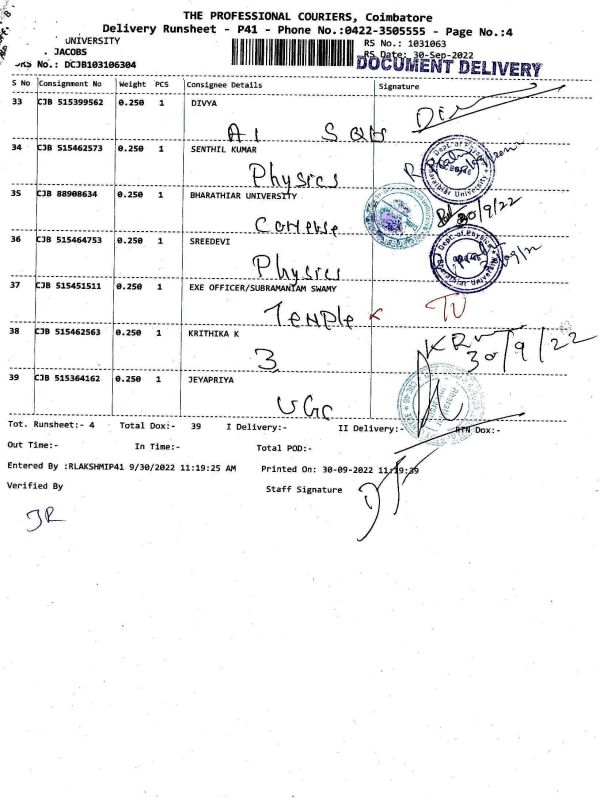 THE PROFESSIONAL COURIERS, Coimbatore
Delivery Runsheet - P41 - Phone No.:0422-3505555 - Page No.:4
UNIVERSITY
RS No.: 1031063
. JACOBS
RS Date: 30-Sep-2022
DRS No.: DCJB103106304
DOCUMENT DELIVERY
S No Consignment No Weight PCS Consignee Details Signature
33 CJB 515399562 0.250 1 DIVYA
34 CJB 515462573 0.250 1 SENTHIL KUMAR
Physics
35 CJB 88908634 0.250 1 BHARATHIAR UNIVERSITY
30/9/22
36 CJB 515464753 0.250 1 SREEDEVI
Physics
37 CJB 515451511 0.250 1 EXE OFFICER/SUBRAMANIAM SWAMY
Temple
38 CJB 515462563 0.250 1 KRITHIKA K
3
30/9/22
39 CJB 515364162 0.250 1 JEYAPRIYA
UGC
Tot. Runsheet:- 4 Total Dox:- 39 I Delivery:- II Delivery:- RTN Dox:-
Out Time:- In Time:- Total POD:-
Entered By :RLAKSHMIP41 9/30/2022 11:19:25 AM Printed On: 30-09-2022 11:19:39
Verified By Staff Signature